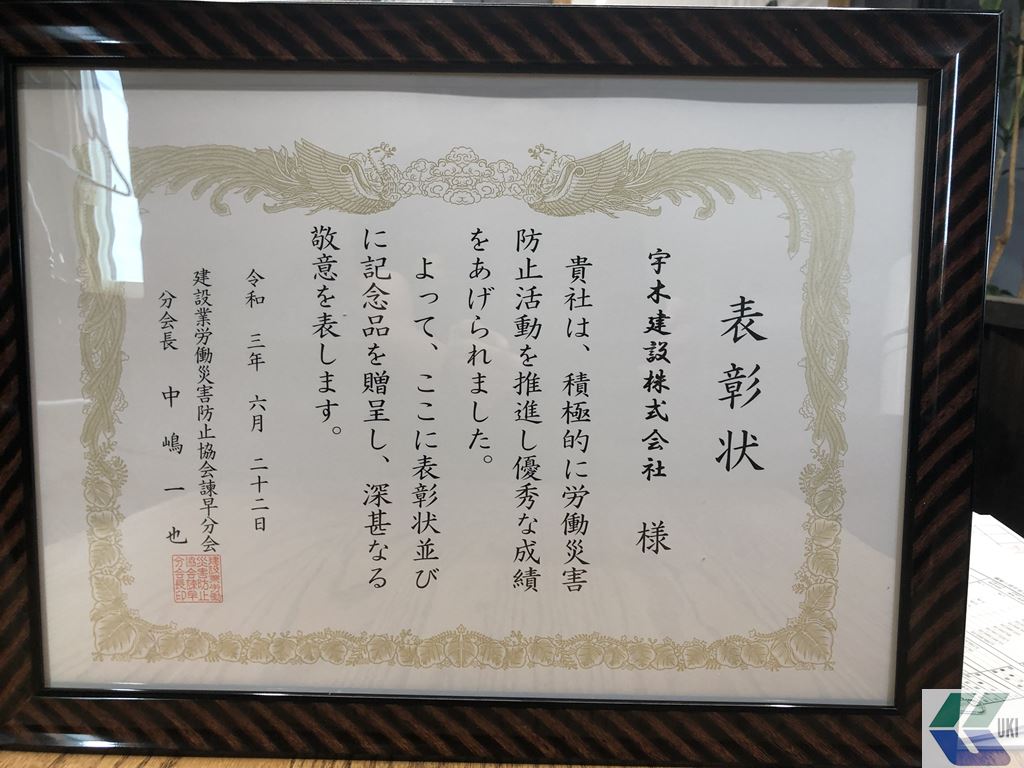 表彰状
宇木建設株式会社 様
貴社は、積極的に労働災害
防止活動を推進し優秀な成績
をあげられました。
よって、ここに表彰状並び
に記念品を贈呈し、深甚なる
敬意を表します。
令和 三年 六月 二十二日
建設業労働災害防止協会諫早分会
分会長 中嶋一也
建設業労働
災害防止
協会諫早
分会長印
UKI